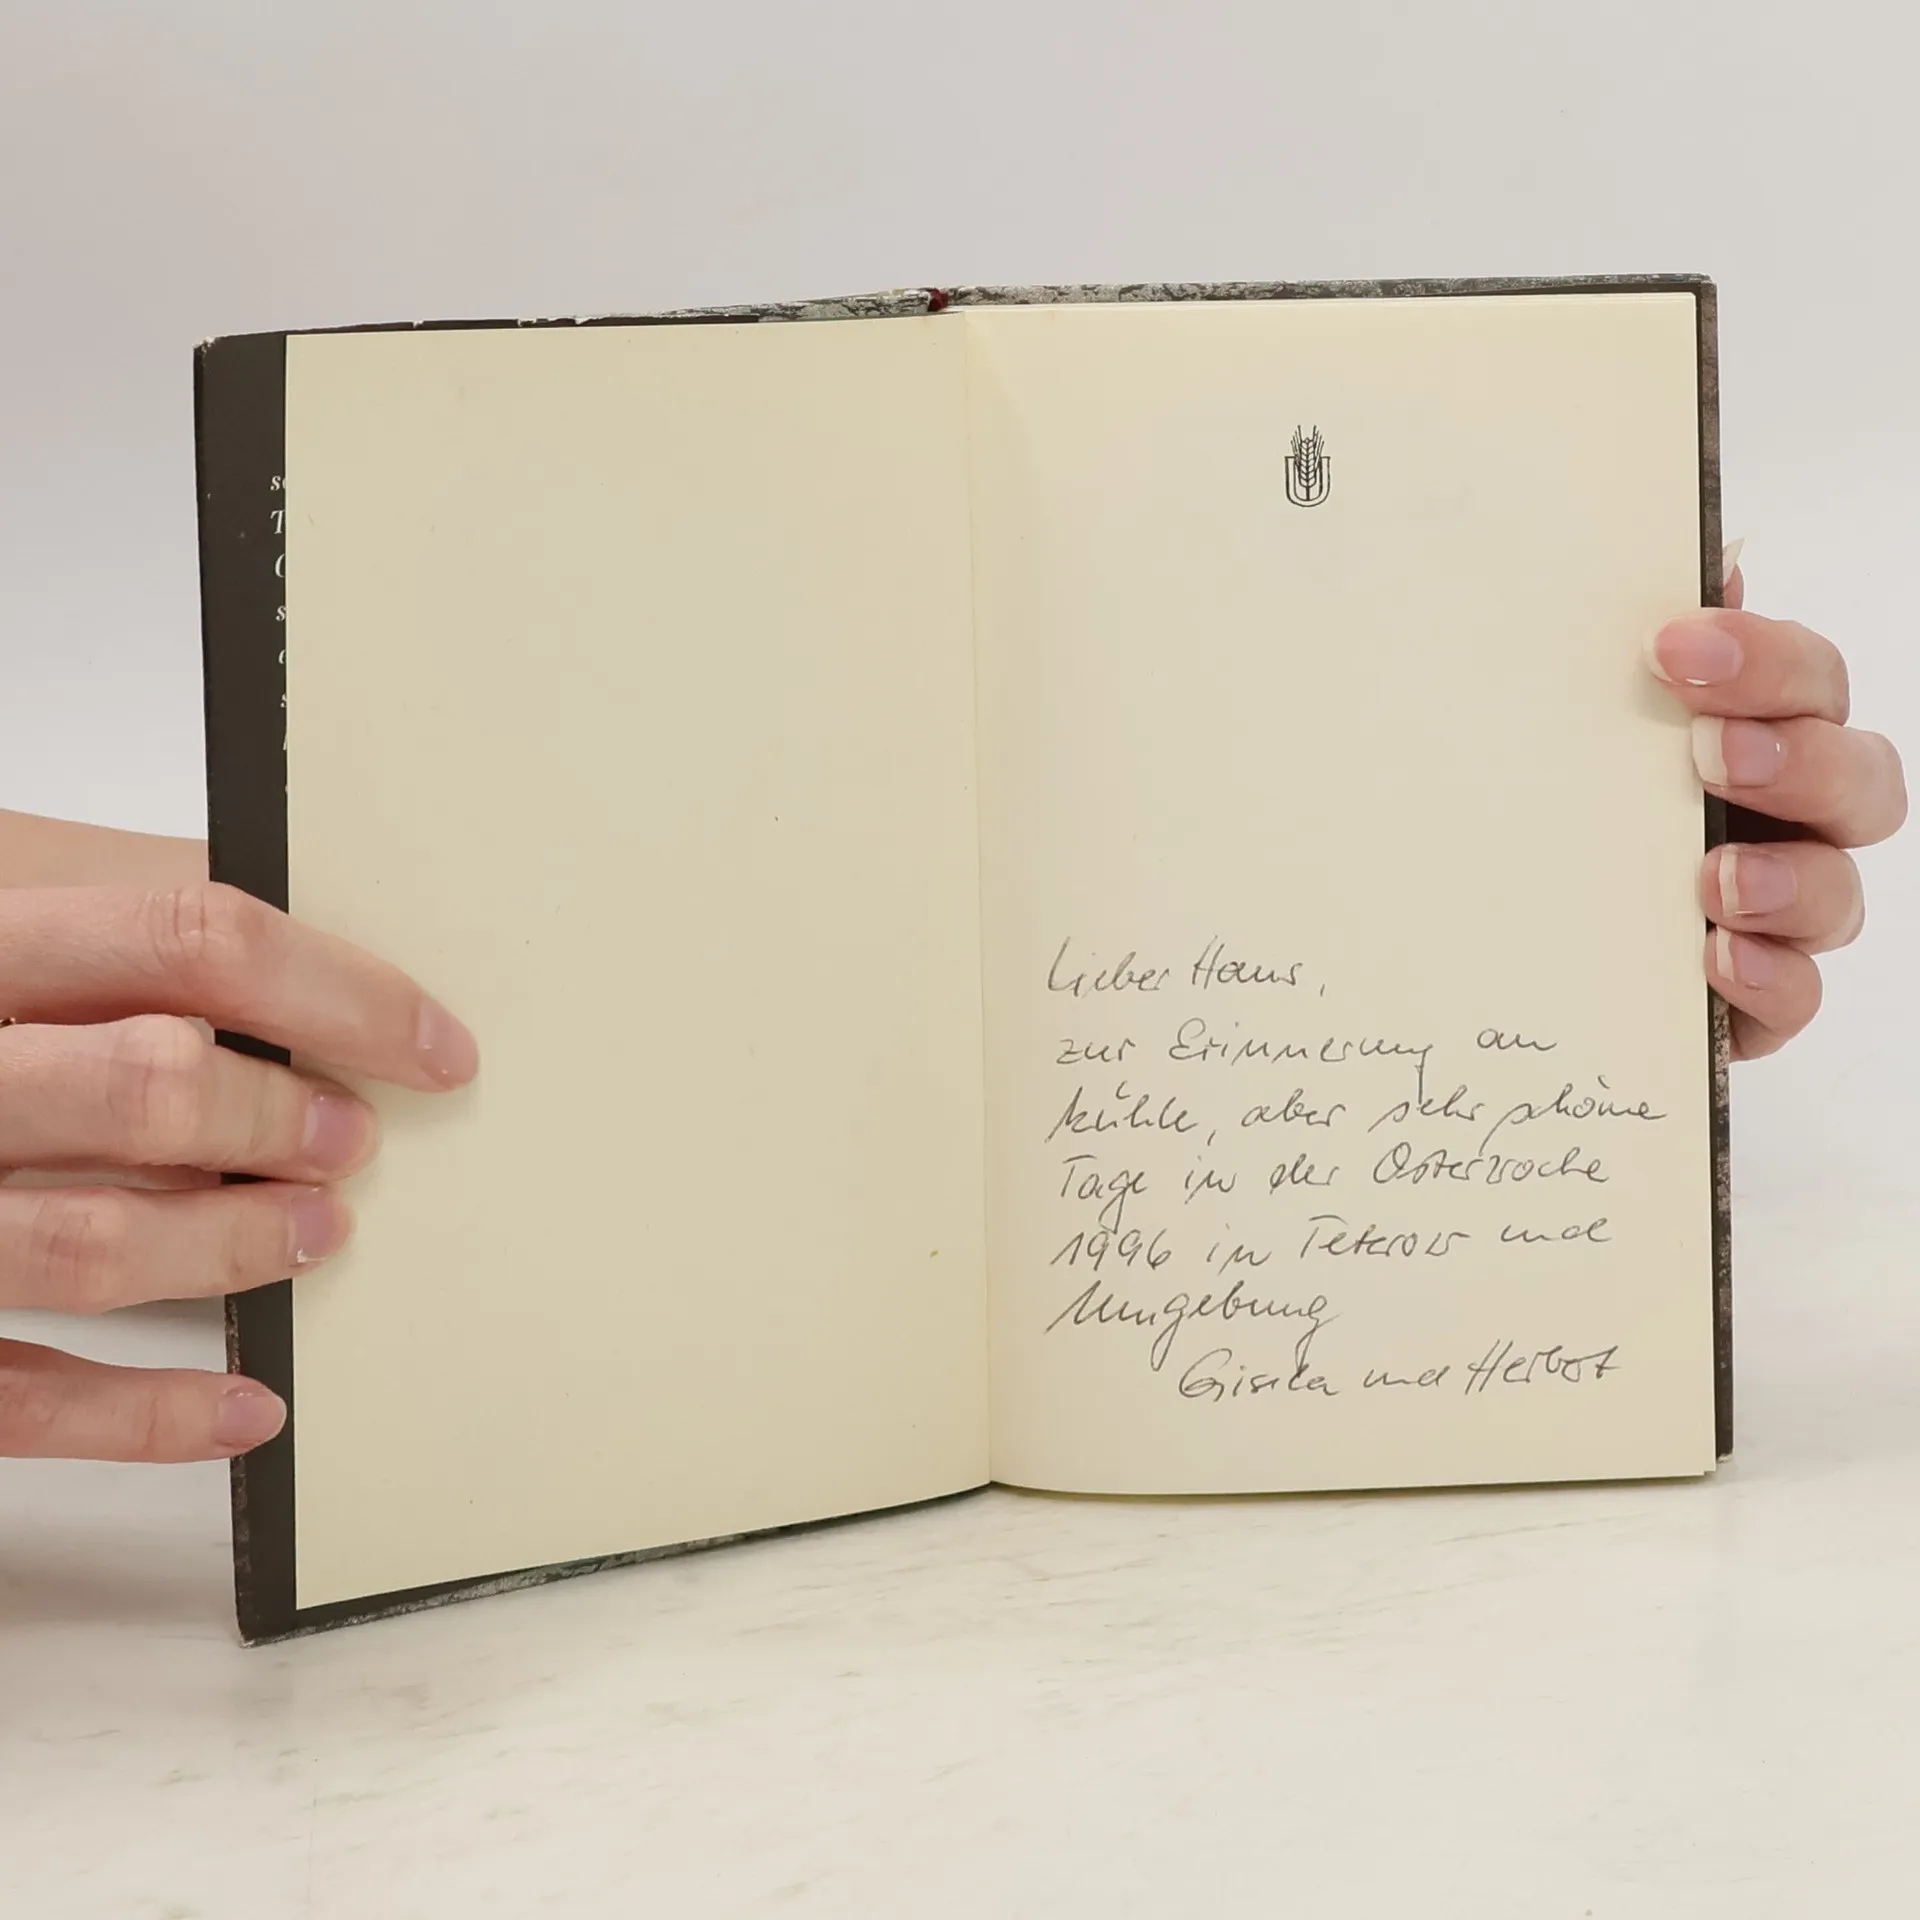 Lieber Hans,
zur Erinnerung an
kühle, aber sehr schöne
Tage in der Osterwoche
1996 in Teterow und
Umgebung
Gisela und Herbst